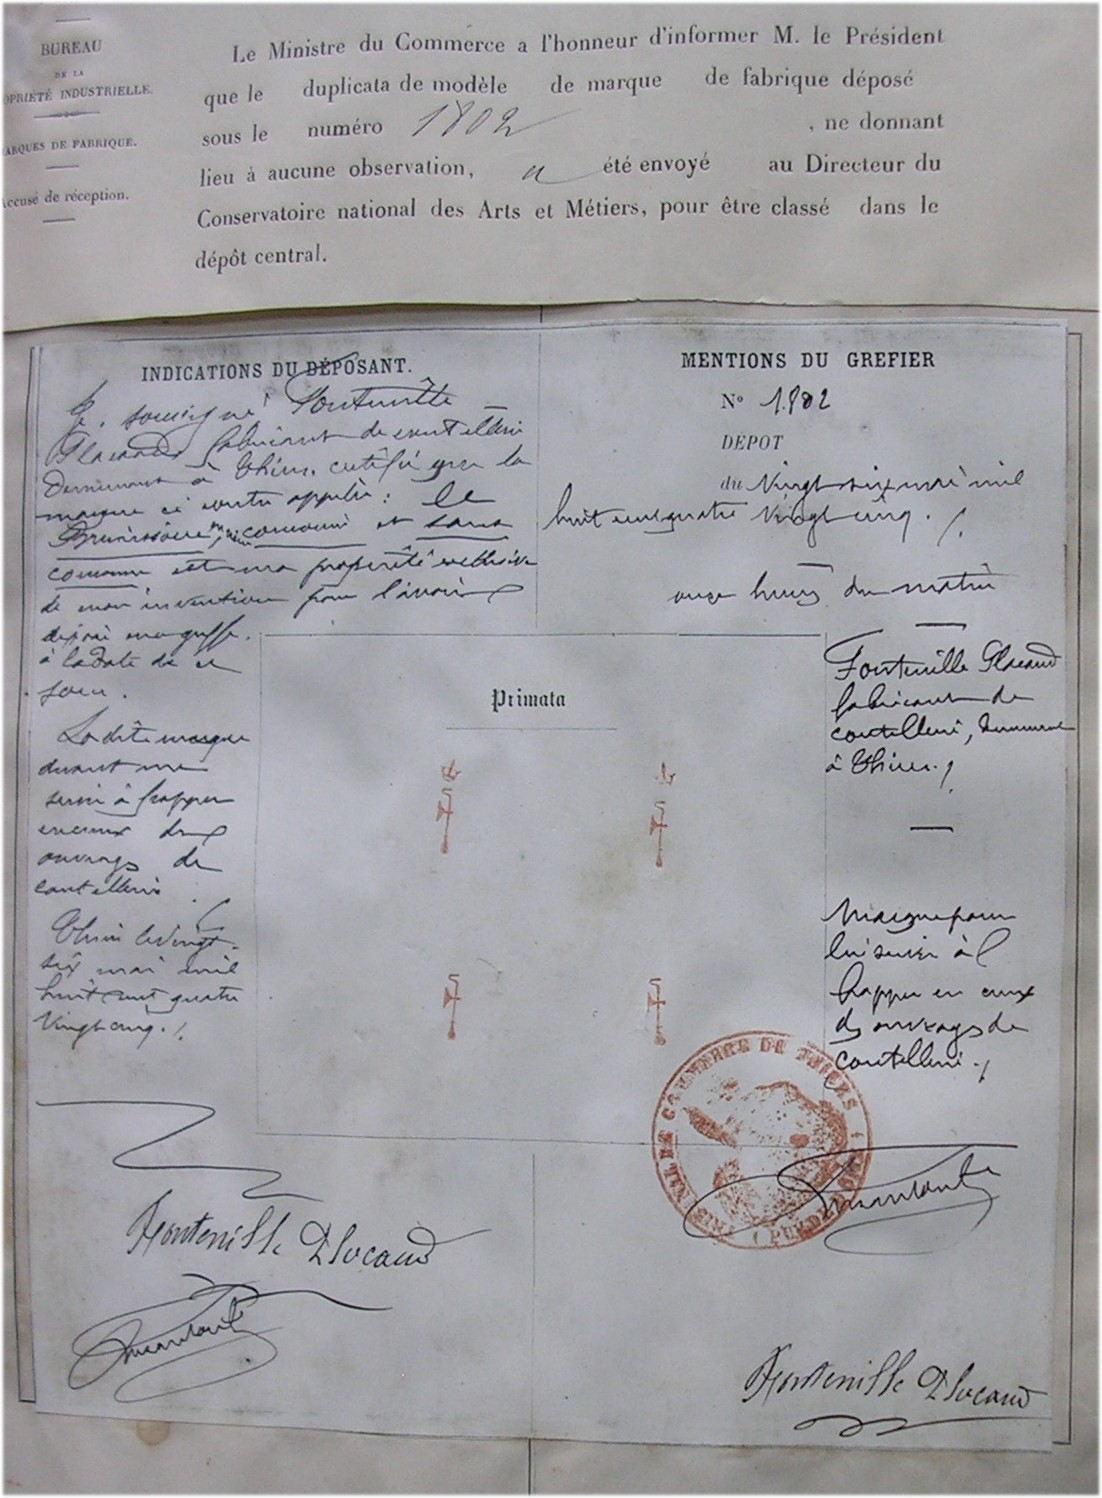 BUREAU
DE LA
OPRIÉTÉ INDUSTRIELLE.
ARQUES DE FABRIQUE.
ccusé de réception.
Le Ministre du Commerce a l'honneur d'informer M. le Président
que le duplicata de modèle de marque de fabrique déposé
sous le numéro 1802 , ne donnant
lieu à aucune observation, a été envoyé au Directeur du
Conservatoire national des Arts et Métiers, pour être classé dans le
dépôt central.
INDICATIONS DU DÉPOSANT.
Je soussigné Fontenille
Placaud fabricant de coutellerie
demeurant à Thiers, certifie que la
marque ci contre appelée: le
Brunissoir couronné et sans
couronne est ma propriété exclusive
de mon invention pour l'avoir
déposé au greffe.
à la date de ce
jour.
La dite marque
devant me
servir à frapper
en creux des
ouvrages de
coutellerie
Thiers le vingt-
six mai mil
huit cent quatre
vingt cinq./.
Fontenille Placaud
MENTIONS DU GREFIER
N° 1.802
DÉPOT
du Vingt six mai mil
huit cent quatre vingt cinq./.
onze heures du matin
Fontenille Placaud
fabricant de
coutellerie, demeurant
à Thiers./
Marque pour
lui servir à
frapper en creux
des ouvrages de
coutellerie./
Primata
TRIBUNAL DE COMMERCE DE THIERS
(PUY DE DÔME)
Fontenille Placaud